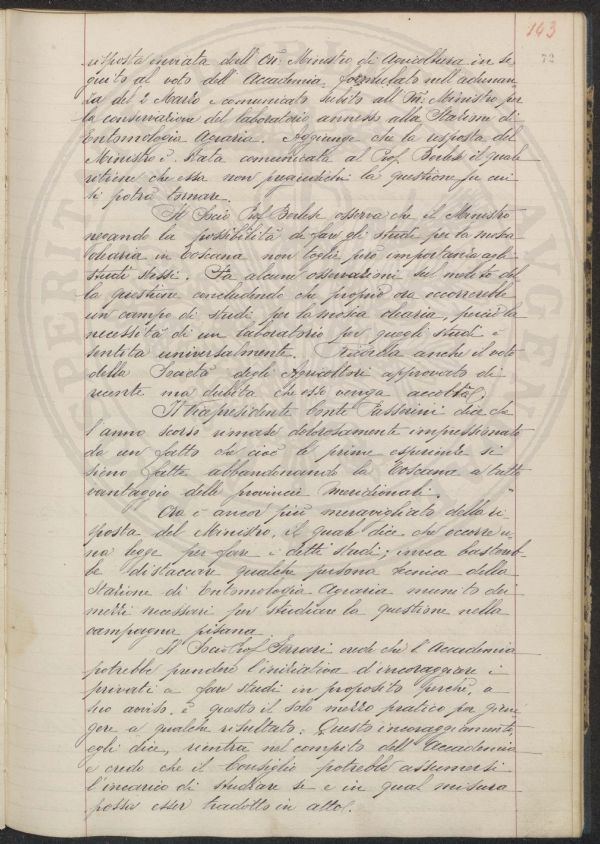 143
72
risposta inviata dall'On. Ministro di Agricoltura in se
guito al voto dell'Accademia, formulato nell'adunan
za del 2 Marzo e comunicato subito all'On. Ministro per
la conservazione del laboratorio annesso alla Stazione di
Entomologia Agraria. Aggiunge che la risposta del
Ministro è stata comunicata al Prof. Berlese il quale
ritiene che essa non pregiudichi la questione su cui
si potrà tornare.
Il Socio Prof. Berlese osserva che il Ministro
negando la possibilità di fare gli studi per la mosca
olearia in Toscana non toglie però importanza agli
studi stessi. Fa alcune osservazioni sul merito del
la questione concludendo che proprio ora occorrerebbe
un campo di studi per la mosca olearia, perciò la
necessità di un laboratorio per quegli studi è
sentita universalmente. Ricorda anche il voto
della Società degli Agricoltori approvato di
recente ma dubita che esso venga accolto.
Il Vicepresidente Conte Passerini dice che
l'anno scorso rimase dolorosamente impressionato
da un fatto che cioè le prime esperienze si
sieno fatte abbandonando la Toscana a tutto
vantaggio delle provincie meridionali.
Ora è ancor più meravigliato della ri
sposta del Ministro, il quale dice che occorre u
na legge per fare i detti studi; invece bastereb
be distaccare qualche persona tecnica della
Stazione di Entomologia Agraria munito dei
mezzi necessari per studiare la questione nella
campagna pisana.
Il Socio Prof. Ferrari crede che l'Accademia
potrebbe prendere l'iniziativa d'incoraggiare i
privati a fare studi in proposito perchè, a
suo avviso, è questo il solo mezzo pratico per giun
gere a qualche risultato. Questo incoraggiamento,
egli dice, rientra nel compito dell'Accademia
e crede che il Consiglio potrebbe assumersi
l'incarico di studiare se e in qual misura
possa esser tradotto in atto.